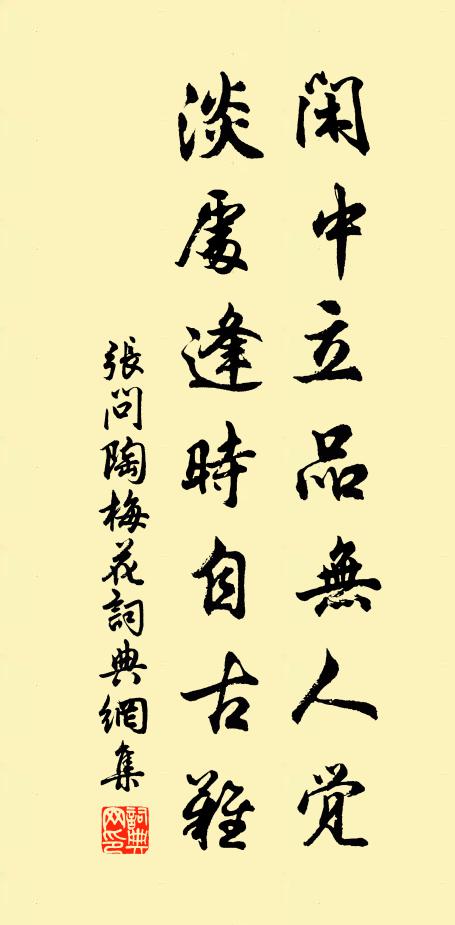 閑中立品無人觉
淡處逢時自古難
張問陶梅花詞典網集
詞典网印